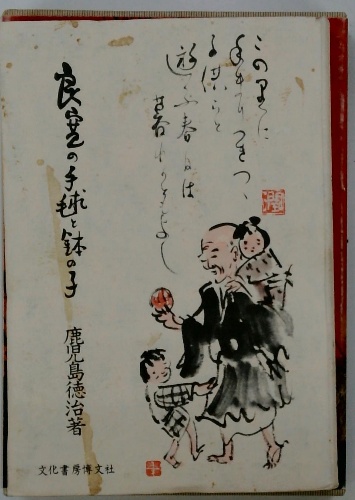 この里に
手まりつきつゝ
子供らと
遊ぶ春日は
暮れずともよし
良寛の手毬と鉢の子
鹿児島徳治著
文化書房博文社